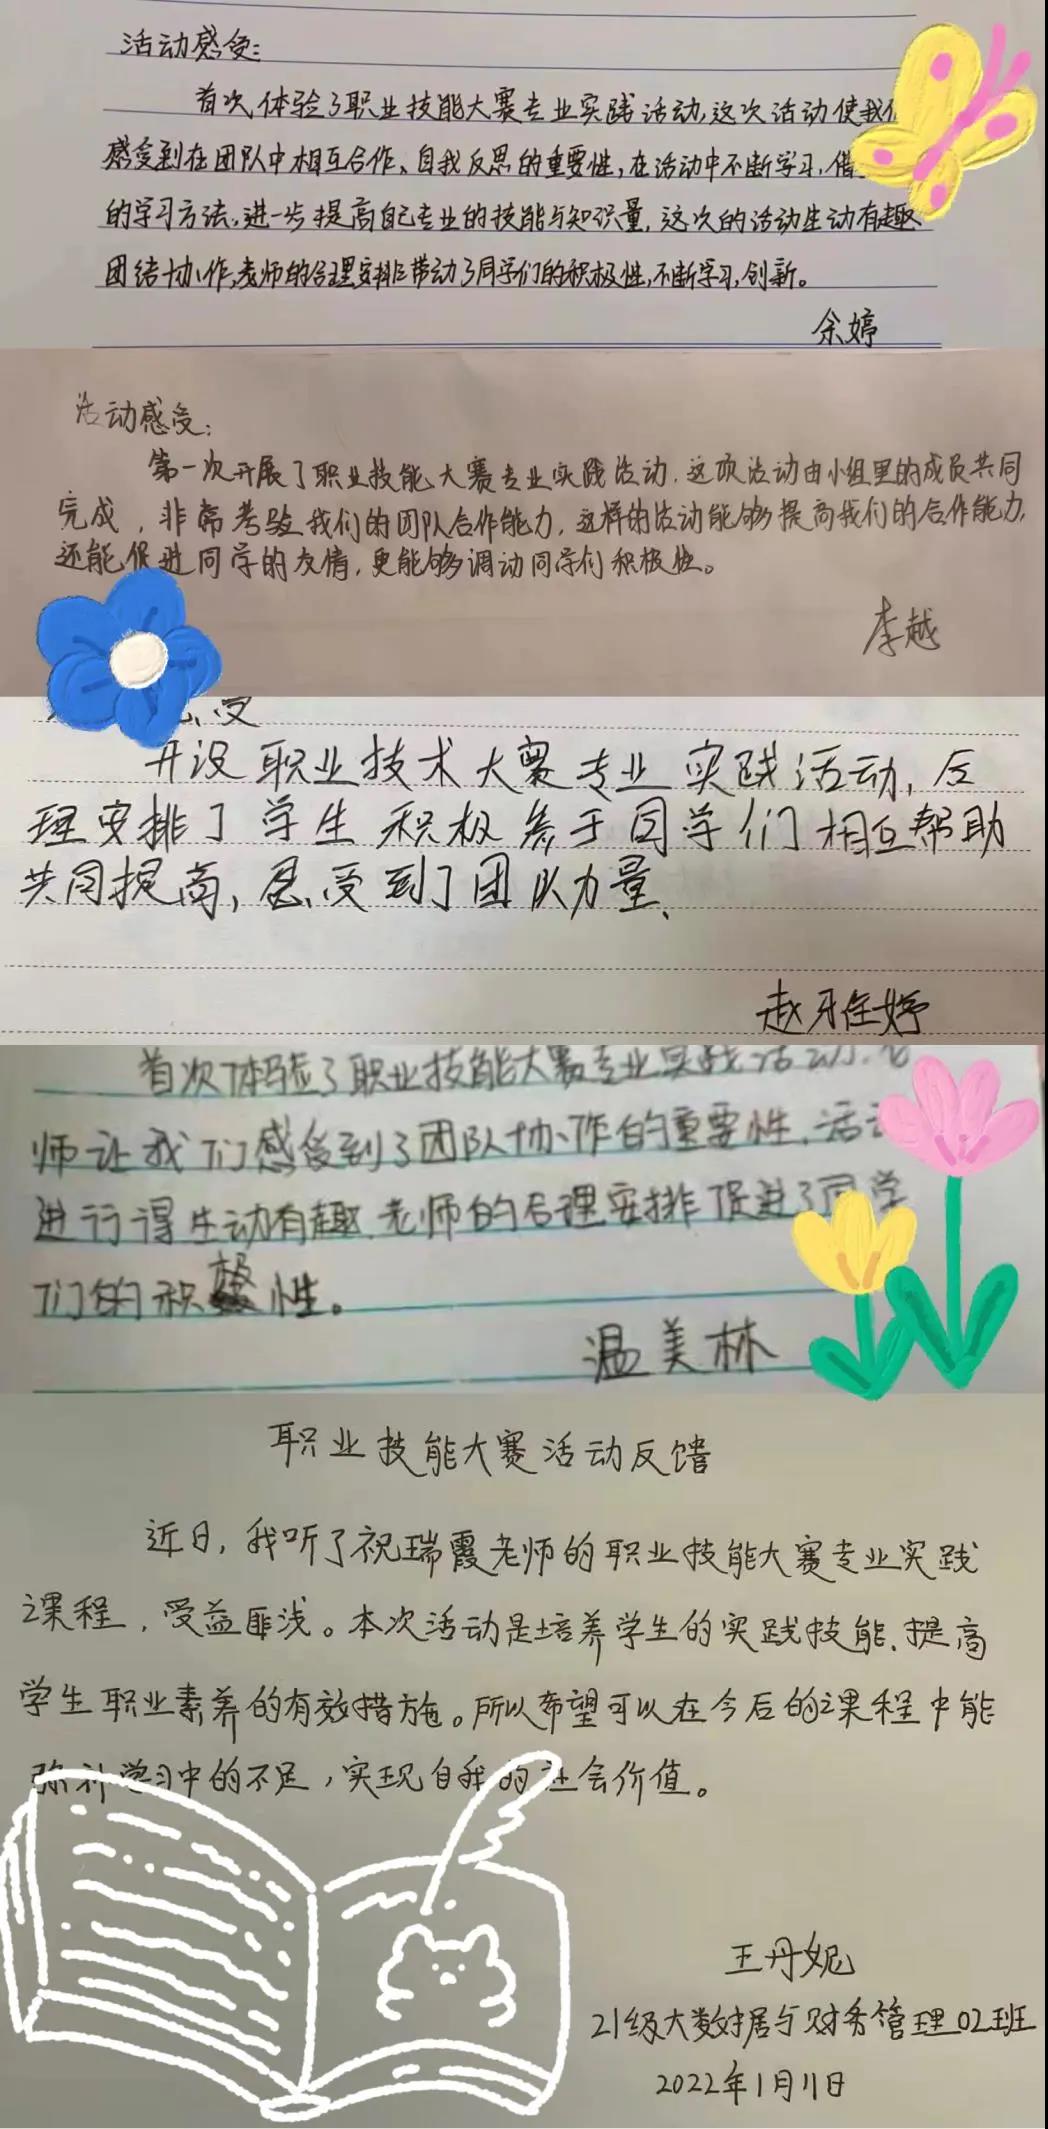 活动感受:
首次体验了职业技能大赛专业实践活动,这次活动使我
感受到在团队中相互合作、自我反思的重要性,在活动中不断学习,借
的学习方法,进一步提高自己专业的技能与知识量,这次的活动生动有趣
团结协作,老师的合理安排带动了同学们的积极性,不断学习,创新。
余婷
活动感受:
第一次开展了职业技能大赛专业实践活动,这项活动由小组里的成员共同
完成,非常考验我们的团队合作能力,这样的活动能够提高我们的合作能力,
还能促进同学的友情,更能够调动同学们积极性。
李越
受
开设职业技术大赛专业实践活动,后
理安排了学生积极参于同学们相互帮助
共同提高,感受到了团队力量、
赵雅婷
首次体验了职业技能大赛专业实践活动,老
师让我们感受到了团队协作的重要性,活
进行得生动有趣,老师的合理安排促进了同学
们的积极性。
温美林
职业技能大赛活动反馈
近日,我听了祝瑞霞老师的职业技能大赛专业实践
课程,受益匪浅。本次活动是培养学生的实践技能、提高
学生职业素养的有效措施。所以希望可以在今后的课程中能
弥补学习中的不足,实现自我的社会价值。
王丹妮
21级大数据与财务管理02班
2022年1月11日